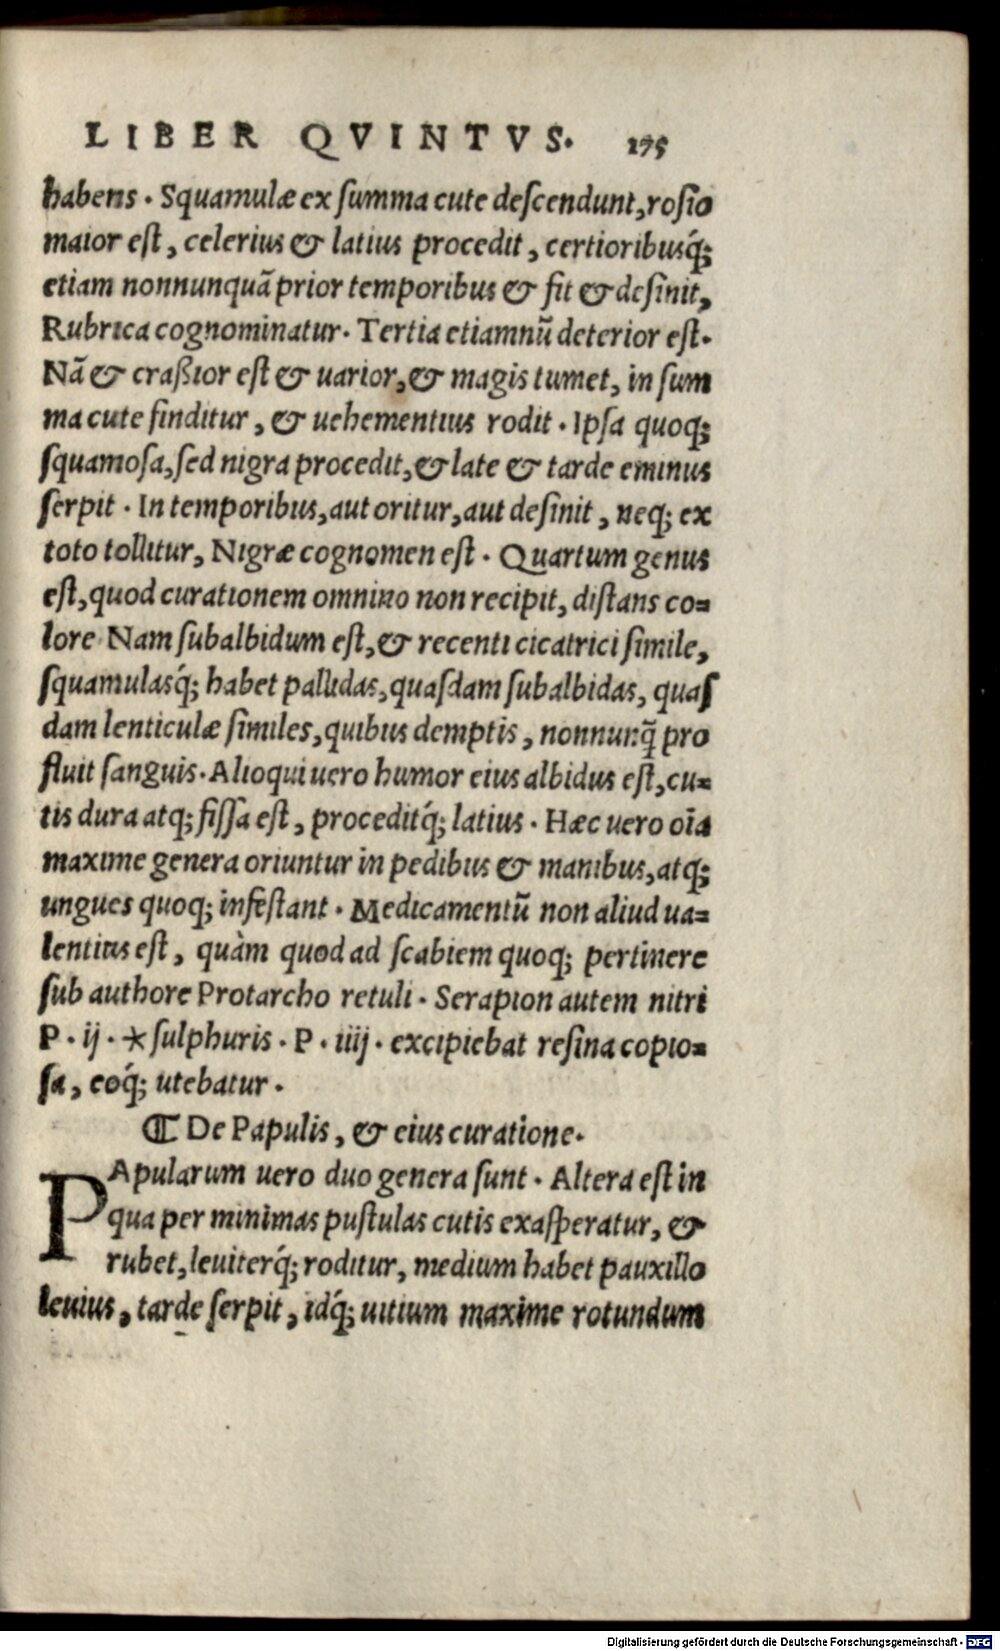 LIBER QVINTVS. 175
habens . Squamulæ ex ſumma cute deſcendunt, roſio
maior eſt, celerius & latius procedit, certioribusq́;
etiam nonnunquã prior temporibus & fit & deſinit,
Rubrica cognominatur. Tertia etiamnũ deterior eſt.
Nã & craßior eſt & uarior, & magis tumet, in ſum
ma cute finditur, & uehementius rodit . Ipſa quoq;
ſquamoſa, ſed nigra procedit, & late & tarde eminus
ſerpit . In temporibus, aut oritur, aut deſinit, neq; ex
toto tollitur, Nigræ cognomen eſt . Quartum genus
eſt, quod curationem omnino non recipit, diſtans co=
lore Nam ſubalbidum eſt, & recenti cicatrici ſimile,
ſquamulasq́; habet pallidas, quaſdam ſubalbidas, quaſ
dam lenticulæ ſimiles, quibus demptis, nonnunq̃ pro
fluit ſanguis. Alioqui uero humor eius albidus eſt, cu=
tis dura atq; fiſſa eſt, proceditq́; latius . Hæc uero oĩa
maxime genera oriuntur in pedibus & manibus, atq;
ungues quoq; infeſtant . Medicamentũ non aliud ua=
lentius eſt, quàm quod ad ſcabiem quoq; pertinere
ſub authore Protarcho retuli . Serapion autem nitri
P . ij . * ſulphuris . P . iiij . excipiebat reſina copio=
ſa, eoq́; utebatur .
⸿ De Papulis, & eius curatione.
PApularum uero duo genera ſunt . Altera eſt in
qua per minimas puſtulas cutis exaſperatur, &
rubet, leuiterq́; roditur, medium habet pauxillo
leuius, tarde ſerpit, idq́; uitium maxime rotundum
Digitalisierung gefördert durch die Deutsche Forschungsgemeinschaft - DFG